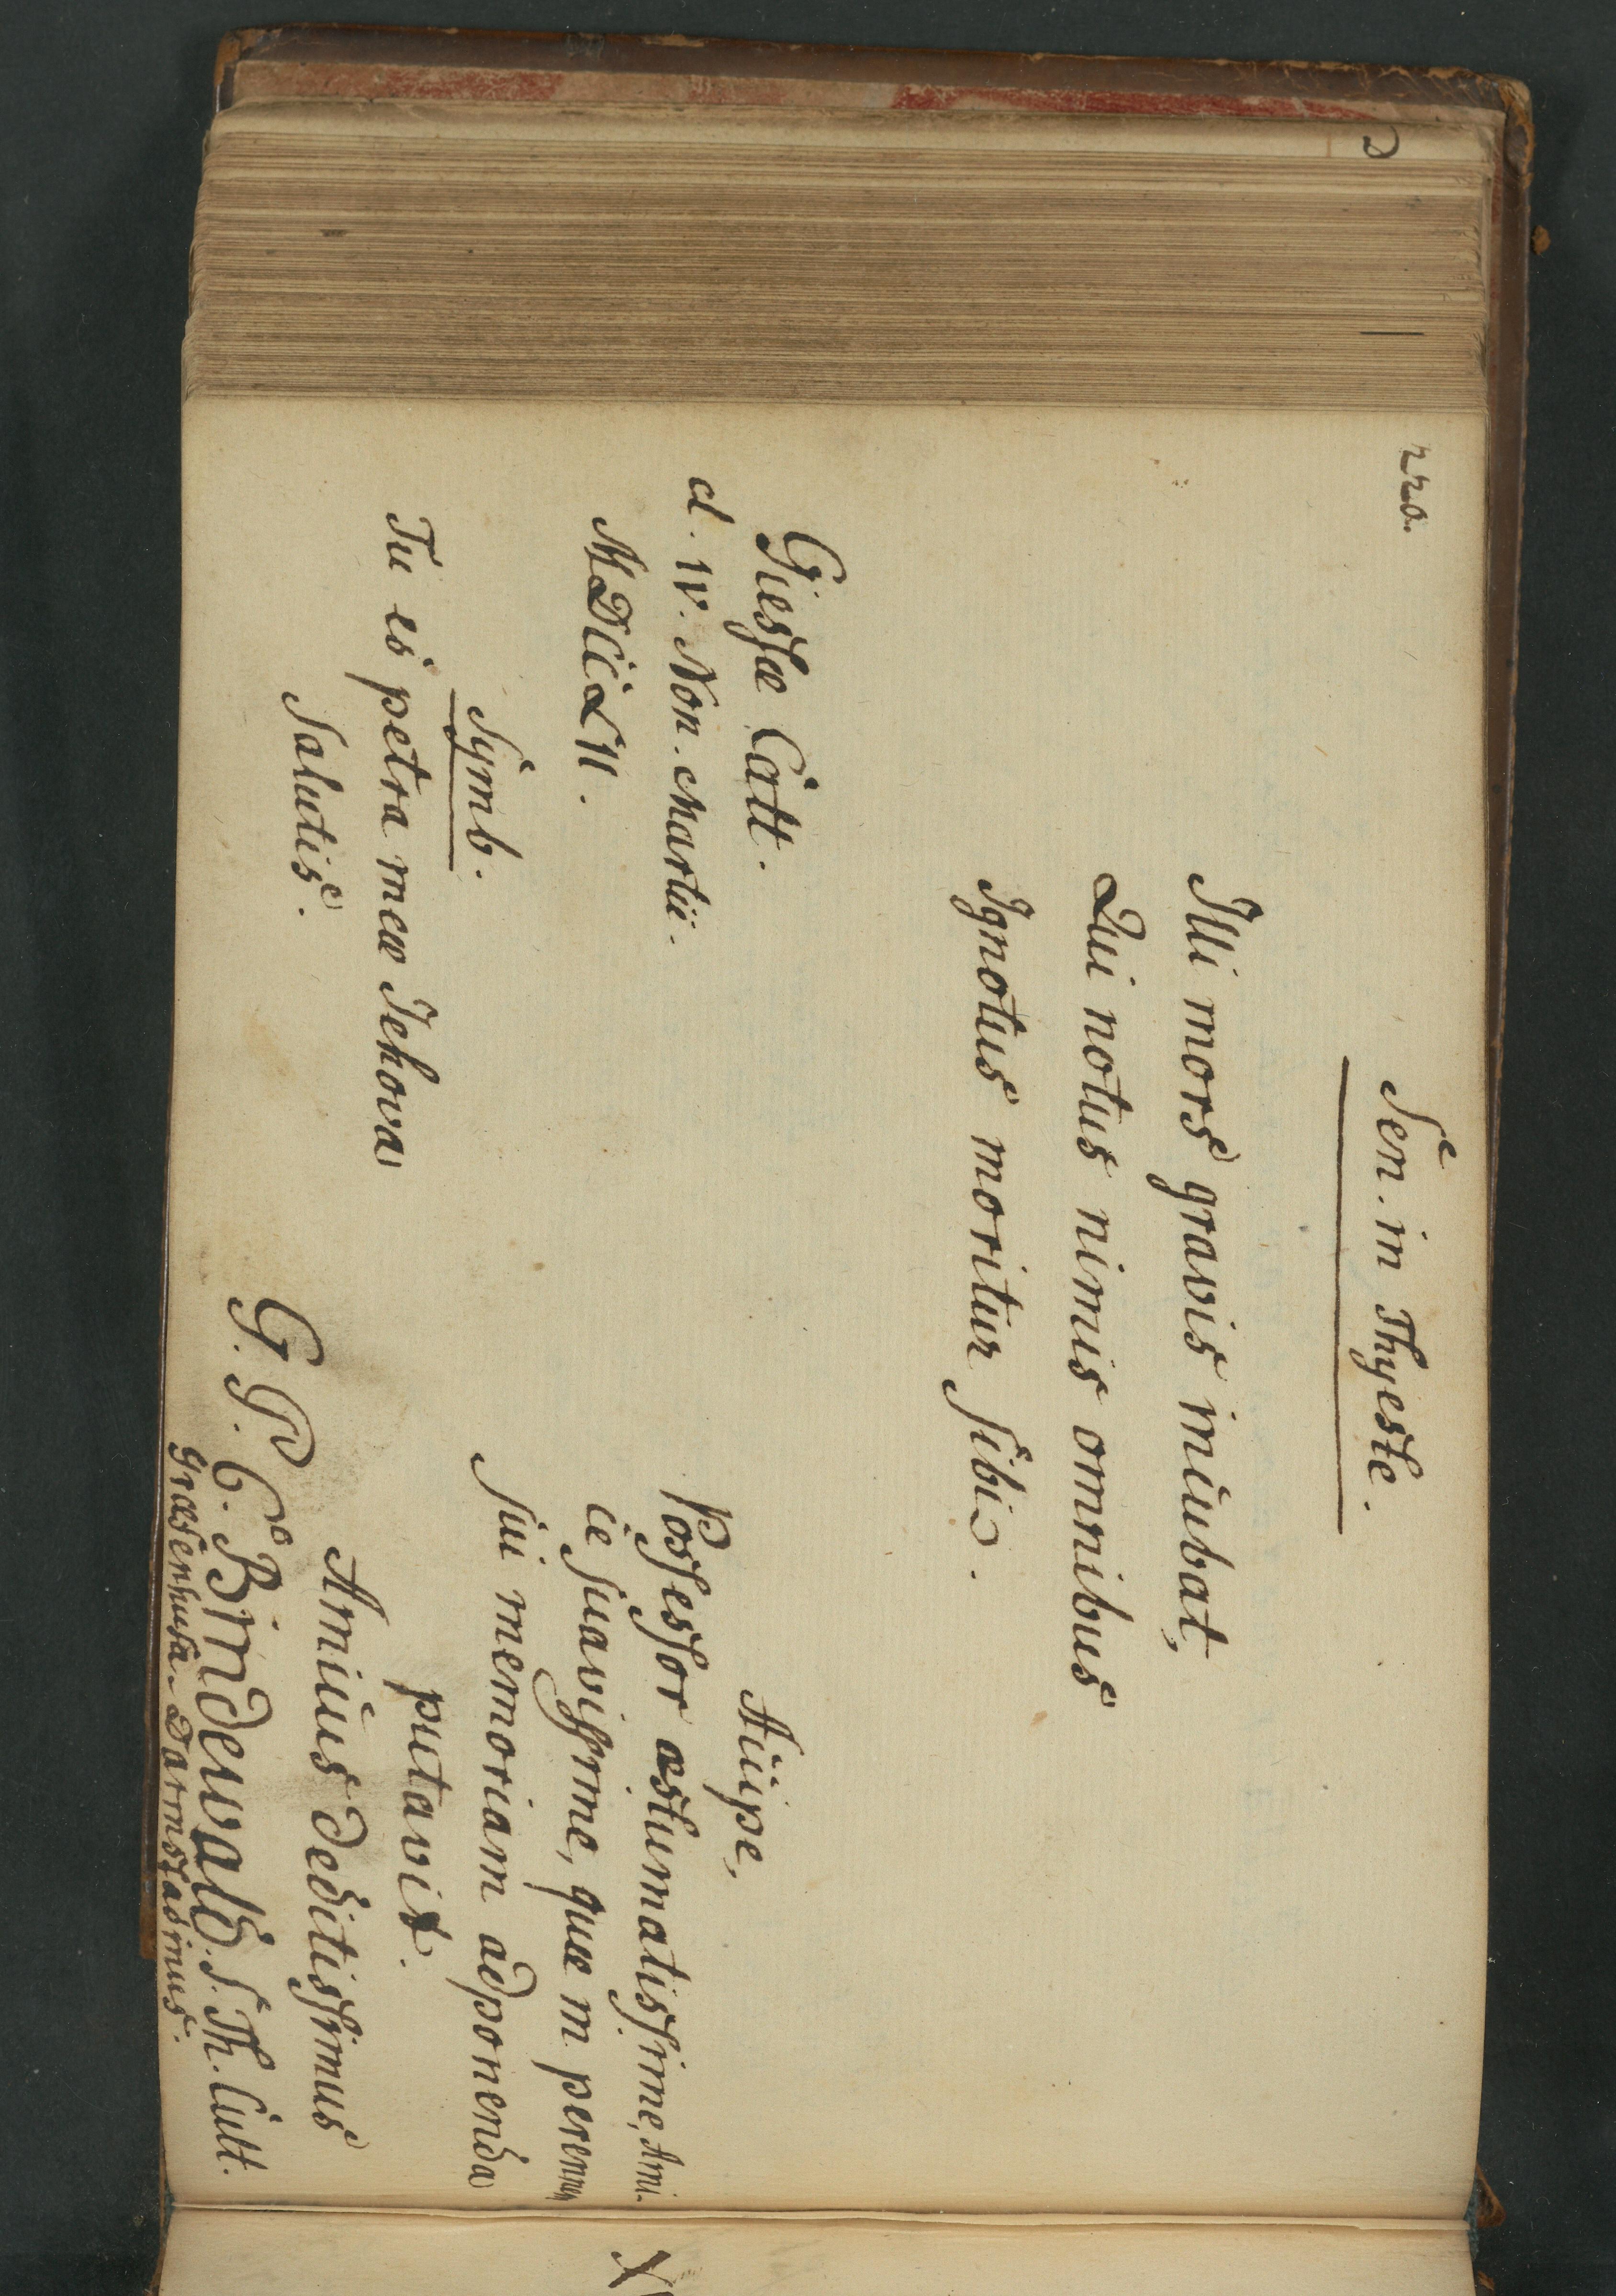 220.
Sen. in Thyeste.
Illi mors gravis incubat,
Qui notus nimis omnibus
Ignotus moritur sibi.
Giessæ Catt.
d. IV. Non. Martii.
MDCCLII.
Symb.
Tu es petra meæ Jehova
Salutis.
Accipe,
Possessor æstumatissime, Ami-
ce suavissime, quæ in perennem
sui memoriam adponenda
putavit.
Amicus deditissimus
G. P. C. Bindewald. S. Th. Cult.
Darmstadinus.